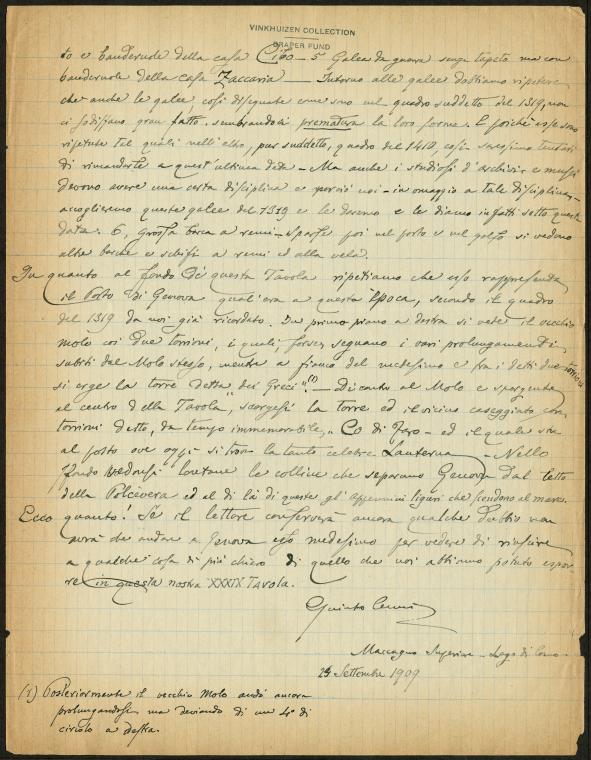 VINKHUIZEN COLLECTION
DRAPER FUND
to e banderuole della casa Cibo – 5 Galea da guerra senza tapeto ma con
banderuole della casa Zaccaria — Intorno alle galee dobbiamo ripetere
che anche le galee, così disegnate come sono nel quadro suddetto del 1319, non
ci sodisfano gran fatto, sembrandoci prematura la loro forma. E poichè esse sono
ripetute tal quali nell'altro, pur suddetto, quadro del 1410, così saressimo tentati
di rimandarle a quest'ultima data – Ma anche i studiosi d'archivi e musei
devono avere una certa disciplina e perciò noi – in omaggio a tale disciplina –
accoglieremo queste galee del 1319 e le daremo e le diamo infatti sotto questa
data. 6, Grossa barca a remi – Sparse poi nel porto e nel golfo si vedono
altre barche e schifi a remi ed alla vela.
In quanto al fondo di questa Tavola ripetiamo che esso rappresenta
il Porto di Genova qual'era a questa Epoca, secondo il quadro
del 1319 da noi già ricordato. In primo piano a destra si vede il vecchio
molo coi due torrioni, i quali, forse, segnano i vari prolungamenti
subiti dal Molo stesso, mentre a fianco del medesimo e fra i detti due torrioni
si erge la torre detta "dei Greci". (1) – Di contro al Molo e sporgente
al centro della Tavola, scorgesi la torre ed il vicino caseggiato con
torrioni detto, da tempo immemorabile, "Co di Faro – ed il quale sta
al posto ove oggi si trova la tanto celebre Lanterna — Nello
fondo vedonsi lontane le colline che separano Genova dal letto
della Polcevera ed al di là di queste gli Appennini liguri che scendono al mare.
Ecco quanto! Se il lettore conserverà ancora qualche dubbio non
avrà che andare a Genova egli medesimo per vedere di riuscire
a qualche cosa di più chiaro di quello che noi abbiamo potuto espor-
re in questa nostra XXXIX Tavola.
Quinto Cenni
Maccagno Superiore – Lago di
24 Settembre 1909
(1) Posteriormente il vecchio Molo andò ancora
prolungandosi ma deviando di un 4º di
circolo a destra.